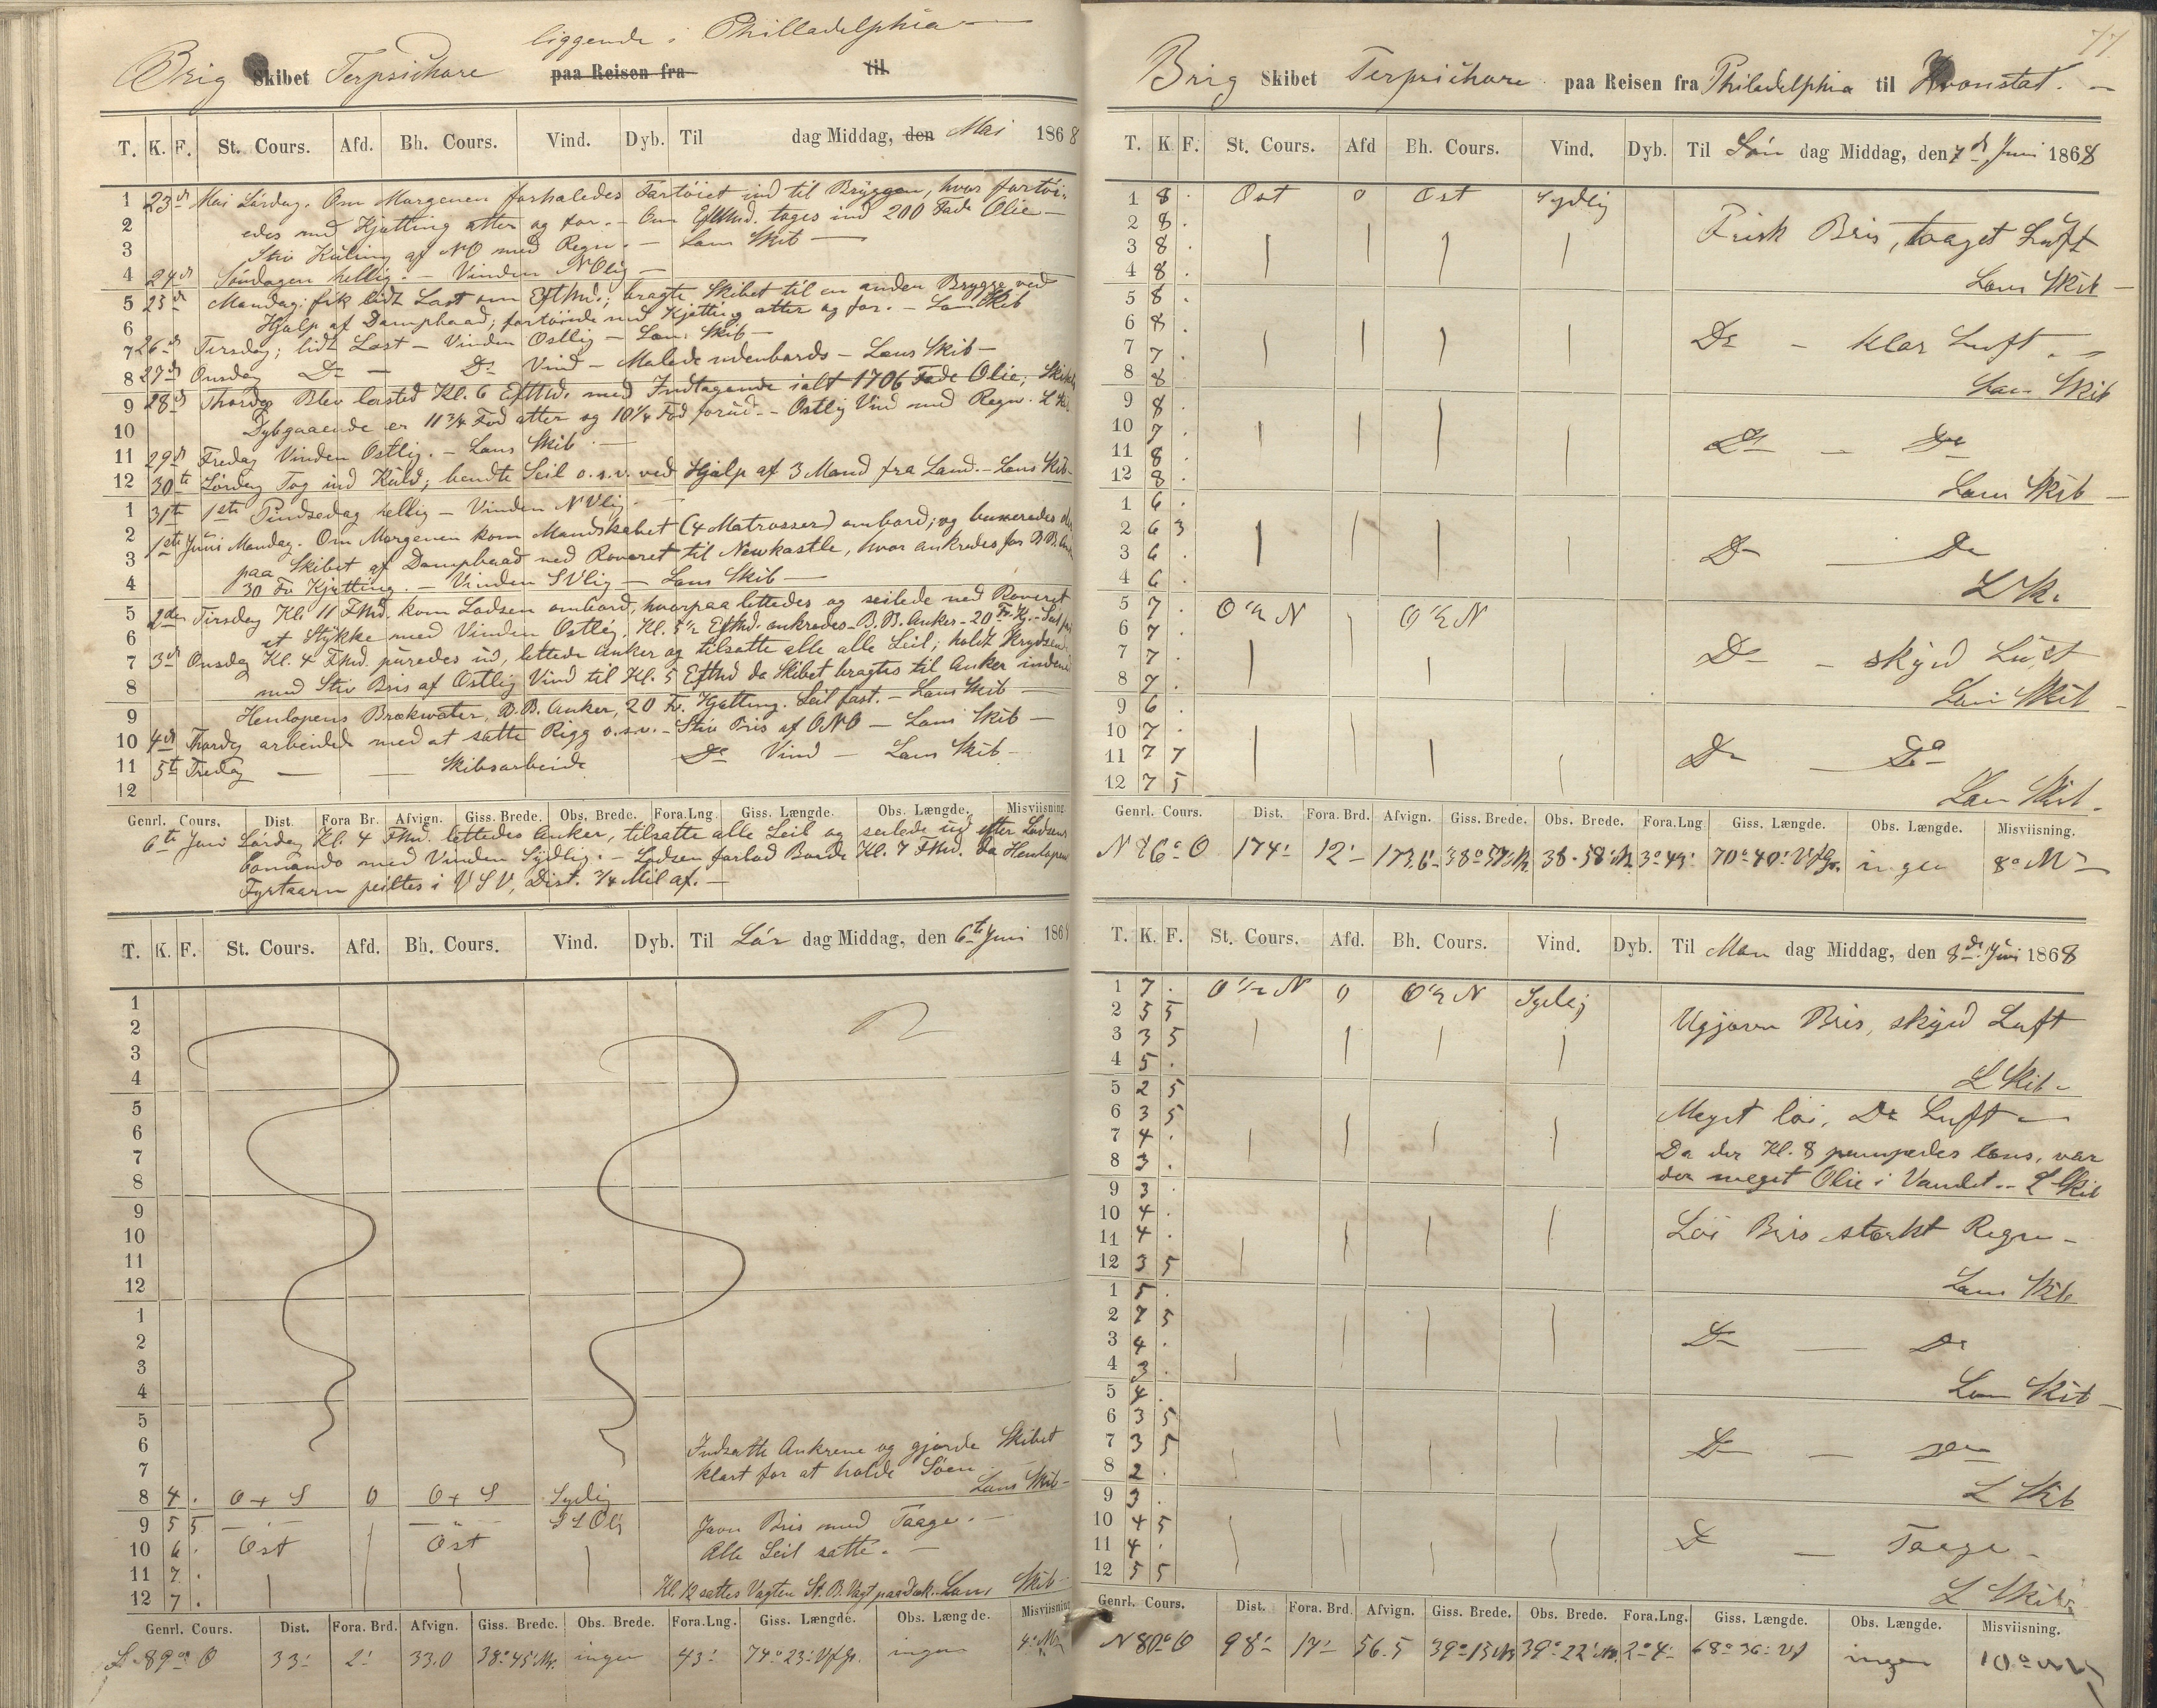 liggende i Philladelphia
Brig Skibet Terpsichore paa Reisen fra til
T. K. F. St. Cours. Afd. Bh. Cours. Vind. Dyb. Til dag Middag, den Mai 1868
1 23d Mai Lördag. Om Morgenen forhaledes Fartöiet ind til Bryggen, hvor fortöi-
2 edes med Kjætting atter og for. – Om EftMd. toges ind 200 Fade Olie –
3 Stiv Kuling af NO med Regn. – Læns Skib –
4 24d Söndagen hellig. – Vinden NOlig –
5 25d Mandag: fik lidt Last om EftMd.; bragte Skibet til en anden Brygge ved
6 Hjælp af Dampbaad; fortöiede med Kjætting atter og for. – Læns Skib
7 26d Tirsdag; lidt Last – Vinden Ostlig – Læns Skib –
8 27d Onsdag Do – Do Vind – Malede udenbords – Læns Skib –
9 28d Thorsdag Blev lastet Kl. 6 EftMd. med Indtagende ialt 1706 Fade Olie; Skibets
10 Dybgaaende er 11 3/4 Fod atter og 10 1/4 Fod forud. – Ostlig Vind med Regn. L Skib
11 29d Fredag Vinden Ostlig. – Læns Skib –
12 30te Lördag Tog ind Kuld; bendte Seil o.s.v. ved Hjælp af 3 Mand fra Land. – Læns Skib –
1 31te 1ste Pindsedag hellig – Vinden NVlig –
2 1ste Juni Mandag. Om Morgenen kom Mandskabet (4 Matrosser) ombord; og buxeredes
3 paa Skibet af Dampbaad ned Reveret til Newkastle, hvor ankredes for B.B. Anker
4 30 Fv Kjætting. – Vinden SVlig – Læns Skib –
5 2den Tirsdag Kl. 11 FMd. kom Lodsen ombord, hvorpaa lettedes og seilede ned Reveret
6 et Stykke med Vinden Ostlig. Kl. 5 1/2 EftMd. ankredes – B.B. Anker – 20 Fv. Kj. –
7 3d Onsdag Kl. 4 FMd. purredes ud, lettede Anker og tilsatte alle alle Seil; holdt Krydsende
8 med Stiv Bris af Ostlig Vind til Kl. 5 EftMd da Skibet bragtes til Anker indenfor
9 Henlopens Brækwater, B.B. Anker, 20 Fv. Kjætting. Seil fast. – Læns Skib –
10 4d Thorsdag arbeidede med at sætte Rigg o.s.v. – Stiv Bris af ONO – Læns Skib –
11 5te Fredag – – Skibsarbeide Do Vind – Læns Skib –
12
Genrl. Cours. Dist. Fora Br. Afvign. Giss. Brede. Obs. Brede. Fora.Lng. Giss. Længde. Obs. Længde. Misviisning.
6te Juni Lördag Kl. 4 FMd. lettedes Anker, tilsatte alle Seil og seilede ud efter Lodsens
Comando med Vinden Sydlig. – Lodsen forlod Borde Kl. 7 FMd. da Henlopen
Fyrtaarn peiltes i VSV, Dist. 3/4 Mil af. –
T. K. F. St. Cours. Afd. Bh. Cours. Vind. Dyb. Til Lör dag Middag, den 6te Juni 1868
1
2
3
4
5
6
7
8
9
10
11
12
1
2
3
4
5
6 Indsatte Ankrene og gjorde Skibet
7 klart for at holde Söen –
8 4 . O + S 0 O + S Sydlig Læns Skib –
9 5 5 – " – – " – SSOlig Jævn Bris med Taage. –
10 6 . Ost Ost Alle Seil satte. –
11 7 .
12 7 . Kl. 12 sattes Vagten St. B. Vagt paa Dæk. Læns Skib –
Genrl. Cours. Dist. Fora. Brd. Afvign. Giss. Brede. Obs. Brede. Fora.Lng. Giss. Længde. Obs. Længde. Misviisning
S 89° O 33' 2' 33.0 38° 45' N. ingen 43' 74° 23' Vf Gr. ingen 4°
77
Brig Skibet Terpsichore paa Reisen fra Philadelphia til Kronstat. –
T. K F. St. Cours. Afd Bh. Cours. Vind. Dyb. Til Sön dag Middag, den 7d Juni 1868
1 8 . Ost 0 Ost Sydlig
2 8 . Frisk Bris, taaget Luft
3 8 .
4 8 . Læns Skib –
5 8 .
6 8 . Do – klar Luft. –
7 7 .
8 8 . Læns Skib
9 8 .
10 7 . Do – Do
11 8 .
12 8 . Læns Skib –
1 6 .
2 6 3
3 6 . Do – Do
4 6 . L Sk.
5 7 . O 1/2 N O 1/2 N
6 7 .
7 7 . Do – skyed Luft
8 7 . Læns Skib –
9 6 .
10 7 .
11 7 7 Do – Do
12 7 5 Læns Skib –
Genrl. Cours. Dist. Fora. Brd. Afvign. Giss. Brede. Obs. Brede. Fora.Lng Giss. Længde. Obs. Længde. Misviisning.
N 86° O 174' 12' 173.6' 38° 57' N. 38° 58' N. 3° 43' 70° 40' Vf Gr. ingen 8°
T. K. F. St. Cours. Afd. Bh. Cours. Vind. Dyb. Til Man dag Middag, den 8de Juni 1868
1 7 . O 1/2 N 0 O 1/2 N Sydlig
2 5 5 Ugjævn Bris, skyed Luft
3 3 5
4 5 . L Skib –
5 2 5
6 3 5 Meget löi, Do Luft –
7 4 . Da der Kl. 8 pumpedes læns, var
8 3 . der meget Olie i Vandet. – L Skib
9 3 .
10 4 . Löi Bris stærkt Regn –
11 4 .
12 3 5 Læns Skib
1 5 .
2 7 5
3 4 . Do – Do
4 3 . Læns Skib –
5 4 .
6 3 5
7 3 5 Do – Do
8 2 . L Skib
9 3 .
10 4 5 Do – Taage –
11 4 .
12 5 5 L Skib
Genrl. Cours. Dist. Fora. Brd. Afvign. Giss. Brede. Obs. Brede. Fora.Lng. Giss. Længde. Obs. Længde. Misviisning.
N 80° O 98' 17' 56.5 39° 15' N 39° 22' N. 2° 4' 68° 36' Vf ingen 10°